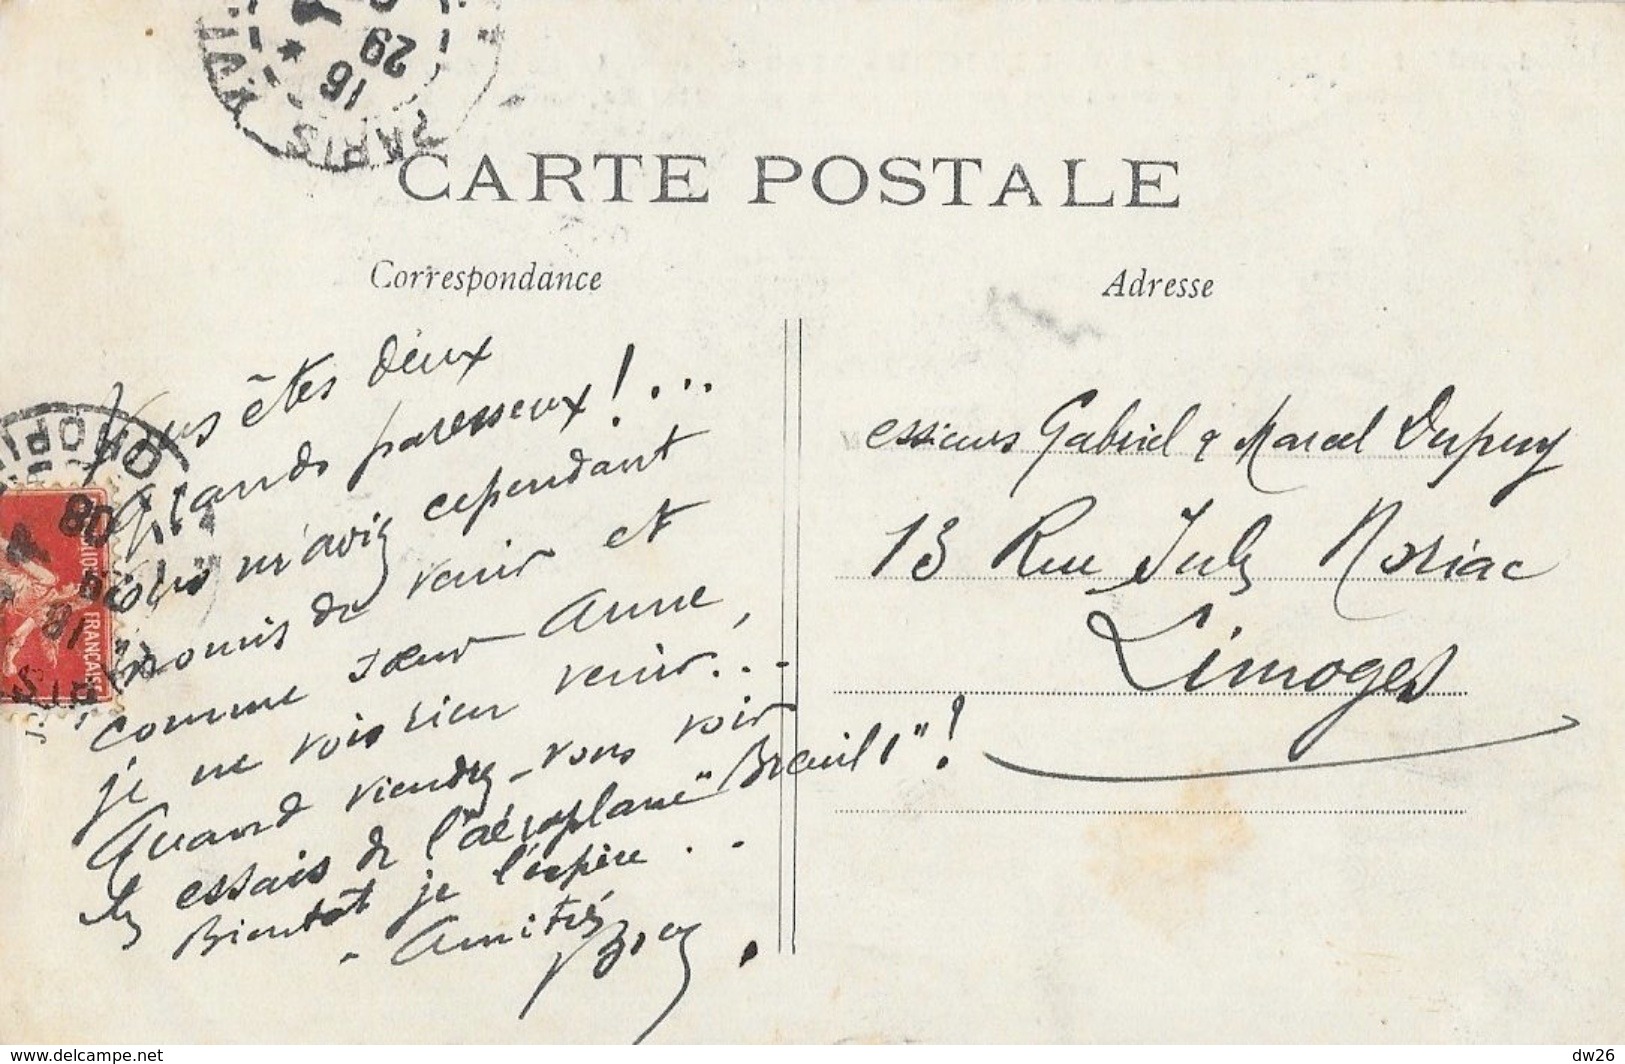 16
29
PARIS
CARTE POSTALE
Correspondance
Adresse
Vous êtes deux
grands paresseux!...
vous m'aviez cependant
promis de venir et
comme sœur Anne,
je ne vois rien venir...
Quand viendrez-vous voir
les essais de l'aéroplane "Breuil 1"!
Bientôt je l'espère...
- Amitiés
essieurs Gabriel & Marcel Dupuy
13 Rue Jules Noriac
Limoges
08
18
FRANÇAISE
www.delcampe.net
dw26